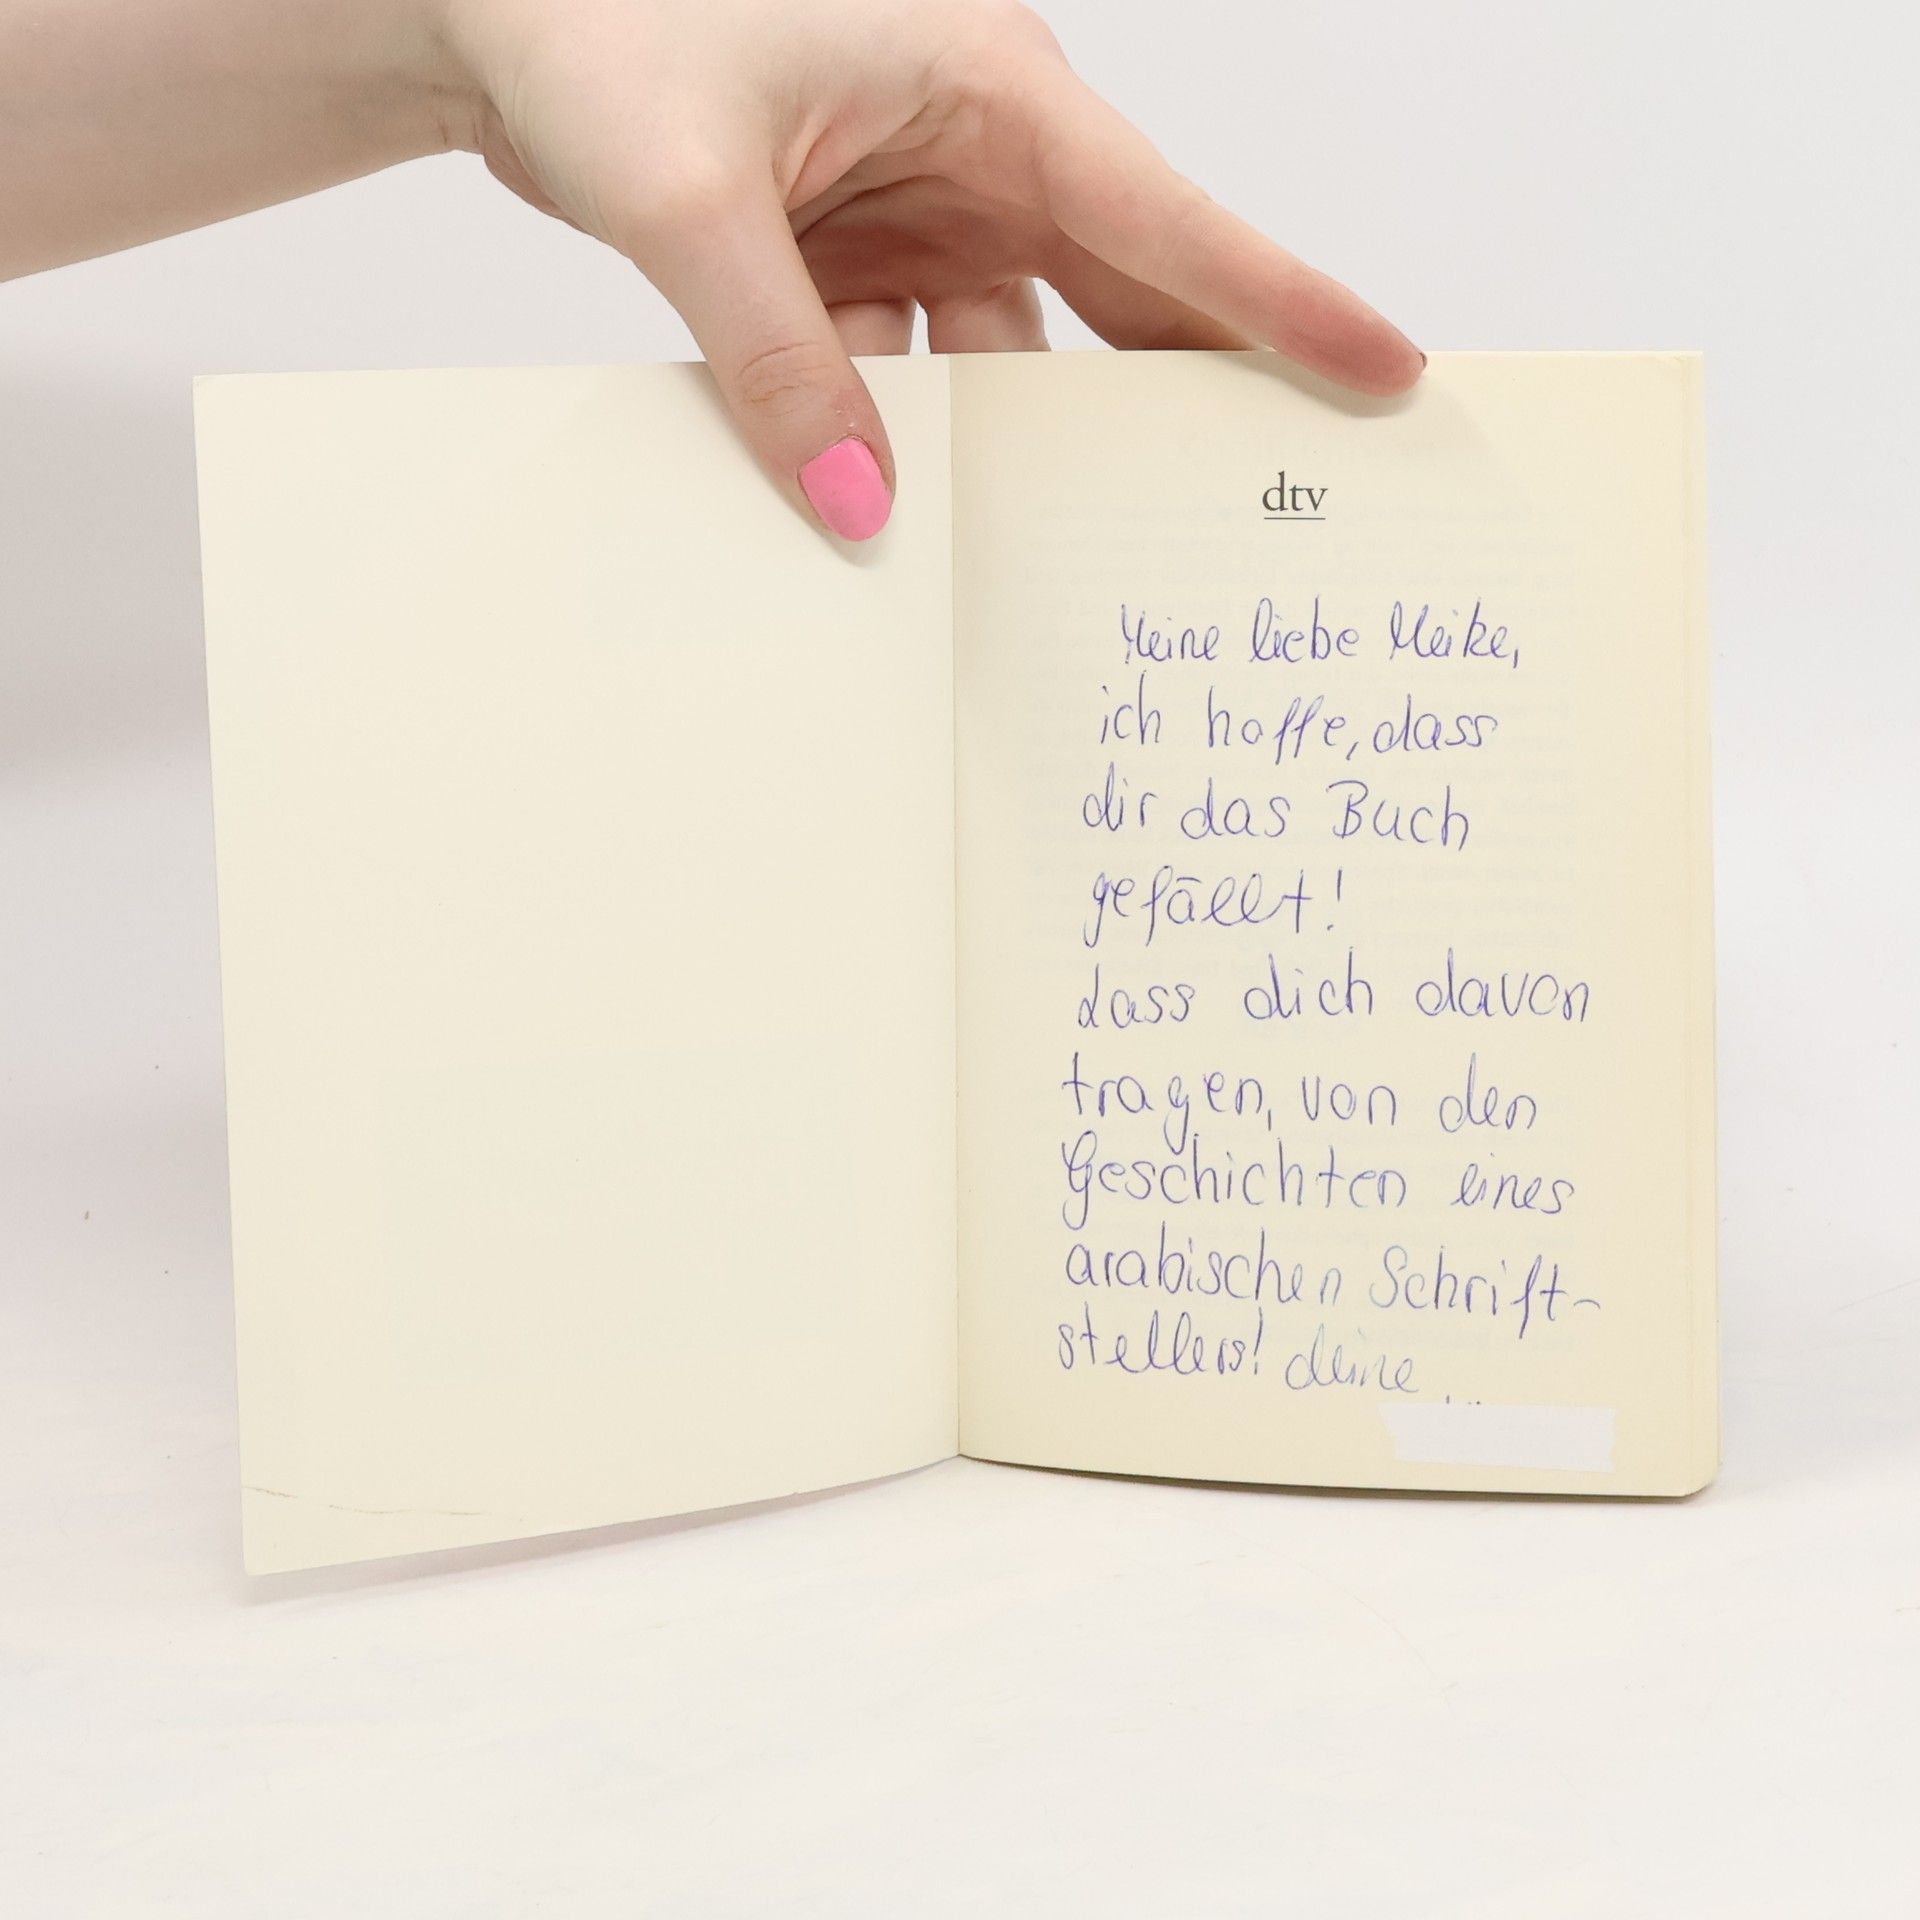 dtv
Meine liebe Meike,
ich hoffe, dass
dir das Buch
gefällt!
Lass dich davon
tragen, von den
Geschichten eines
arabischen Schrift-
stellers! deine